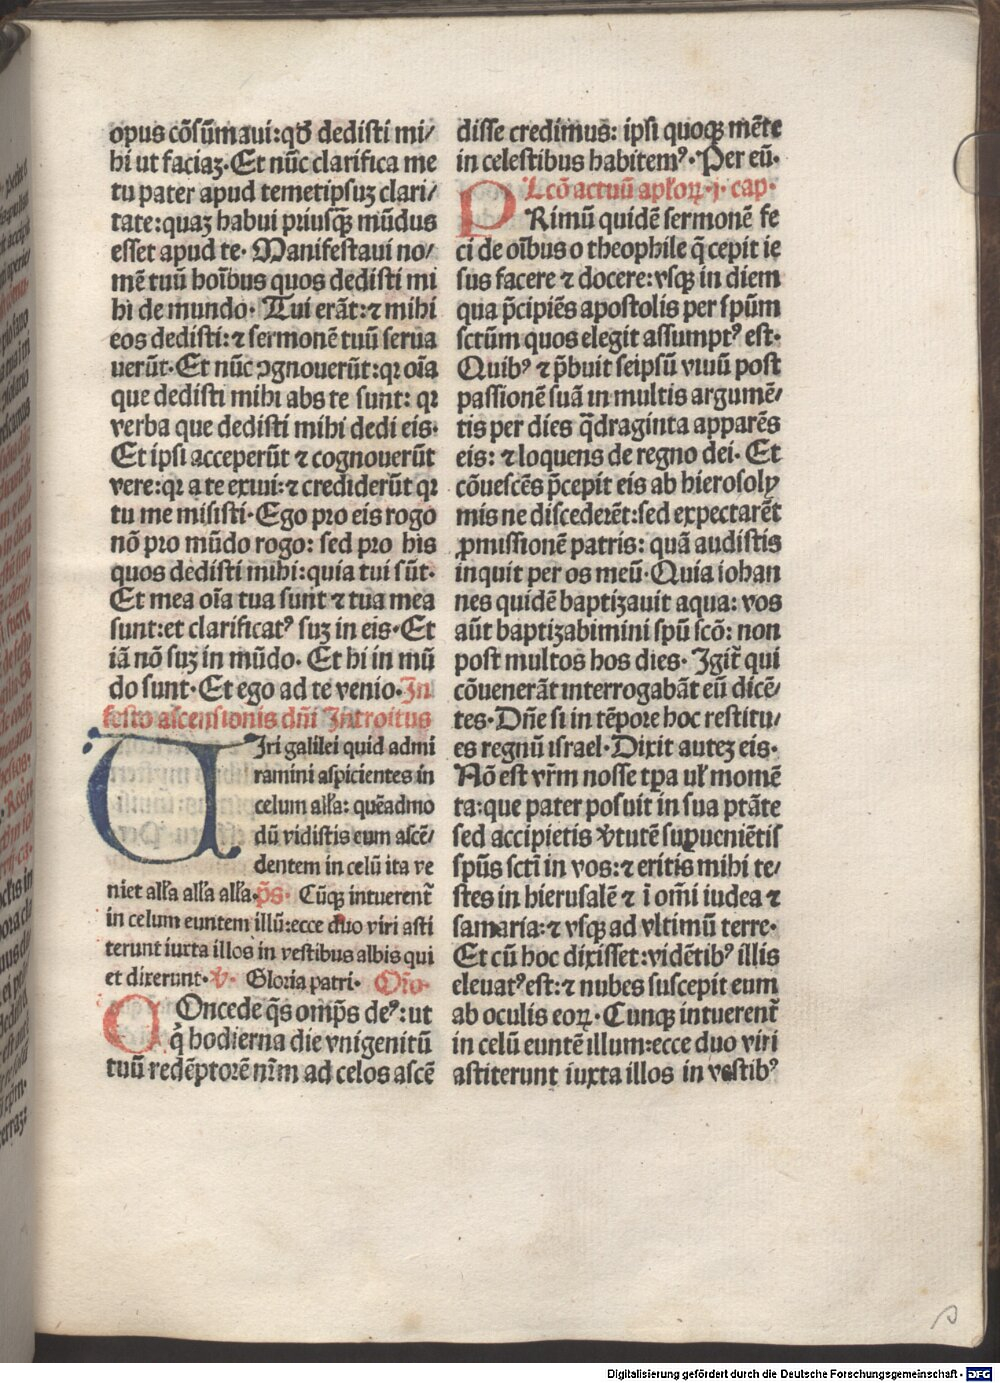 opus cōsūmaui:qđ dedisti mi/
hi ut faciaꝫ·Et nūc clarifica me
tu pater apud temetipsuꝫ clari/
tate:quaꝫ habui priusq̄ꝫ mūdus
esset apud te· Manifestaui no/
mē tuū hoībus quos dedisti mi
hi de mundo· Tui erāt:⁊ mihi
eos dedisti:⁊ sermonē tuū serua
uerūt·Et nūc ↄgnouerūt:qꝛ oīa
que dedisti mihi abs te sunt: qꝛ
verba que dedisti mihi dedi eis·
Et ipsi acceperūt ⁊ cognouerūt
vere:qꝛ a te exiui:⁊ crediderūt qꝛ
tu me misisti·Ego pro eis rogo
nō pro mūdo rogo: sed pro his
quos dedisti mihi:quia tui sūt·
Et mea oīa tua sunt ⁊ tua mea
sunt:et clarificatꝰ suꝫ in eis·Et
iā nō suꝫ in mūdo· Et hi in mū
do sunt·Et ego ad te venio·In
festo ascensionis dn̄i Introitus
UIri galilei quid admi
ramini aspicientes in
celum alĺa: quēadmo
dū vidistis eum ascē/
dentem in celū ita ve
niet alĺa alĺa alĺa·p̄s· Cūqꝫ intuerent̄
in celum euntem illū:ecce duo viri asti
terunt iuxta illos in vestibus albis qui
et dixerunt·V̷· Gloria patri· Oŕo·
COncede q̄s omp̄s deꝰ:ut
q̇ hodierna die vnigenitū
tuū redēptorē nr̄m ad celos ascē
disse credimus: ipsi quoqꝫ mēte
in celestibus habitemꝰ·Per eū·
Lc̄o actuū apĺoꝝ·j·cap·
PRimū quidē sermonē fe
ci de oībus o theophile q̄ cepit ie
sus facere ⁊ docere:vsqꝫ in diem
qua p̄cipiēs apostolis per spūm
sctūm quos elegit assumptꝰ est·
Quibꝰ ⁊ p̄buit seipsū viuū post
passionē suā in multis argumē/
tis per dies q̄draginta apparēs
eis: ⁊ loquens de regno dei· Et
cōuescēs p̄cepit eis ab hierosoly
mis ne discederēt:sed expectarēt
ꝓmissionē patris: quā audistis
inquit per os meū·Quia iohan
nes quidē baptiꝫauit aqua: vos
aūt baptiꝫabimini spū scō: non
post multos hos dies· Igit̄ qui
cōuenerāt interrogabāt eū dicē/
tes·Dn̄e si in tēpore hoc restitu/
es regnū israel·Dixit auteꝫ eis·
Nō est vr̄m nosse tꝑa uĺ momē
ta:que pater posuit in sua ptāte
sed accipietis v̓tutē suꝑueniētis
spūs sctī in vos:⁊ eritis mihi te/
stes in hierusalē ⁊ ī om̄i iudea ⁊
samaria:⁊ vsqꝫ ad vltimū terre·
Et cū hoc dixisset:vidētibꝰ illis
eleuatꝰ est:⁊ nubes suscepit eum
ab oculis eoꝝ·Cunqꝫ intuerent̄
in celū euntē illum:ecce duo viri
astiterunt iuxta illos in vestibꝰ
Digitalisierung gefördert durch die Deutsche Forschungsgemeinschaft - DFG